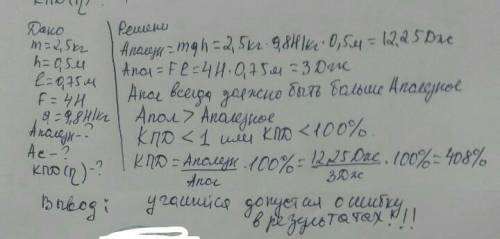 КПД(η) ?
Дано
m=2,5кг
h=0,5м
ℓ=0,75м
F=4Н
g=9,8Н/кг
Аполезн-?
Ас-?
КПД(η)-?
Решение
Аполезн=mgh=2,5кг·9,8Н/кг·0,5м=12,25Дж
Апол=Fℓ=4Н·0,75м=3Дж
Апол всегда должно быть больше Аполезное
Апол>Аполезное
КПД<1 или КПД<100%
КПД=Аполезн/Апол·100%=12,25Дж/3Дж·100%=408%
Вывод: учащийся допустил ошибку
в результатах!!!